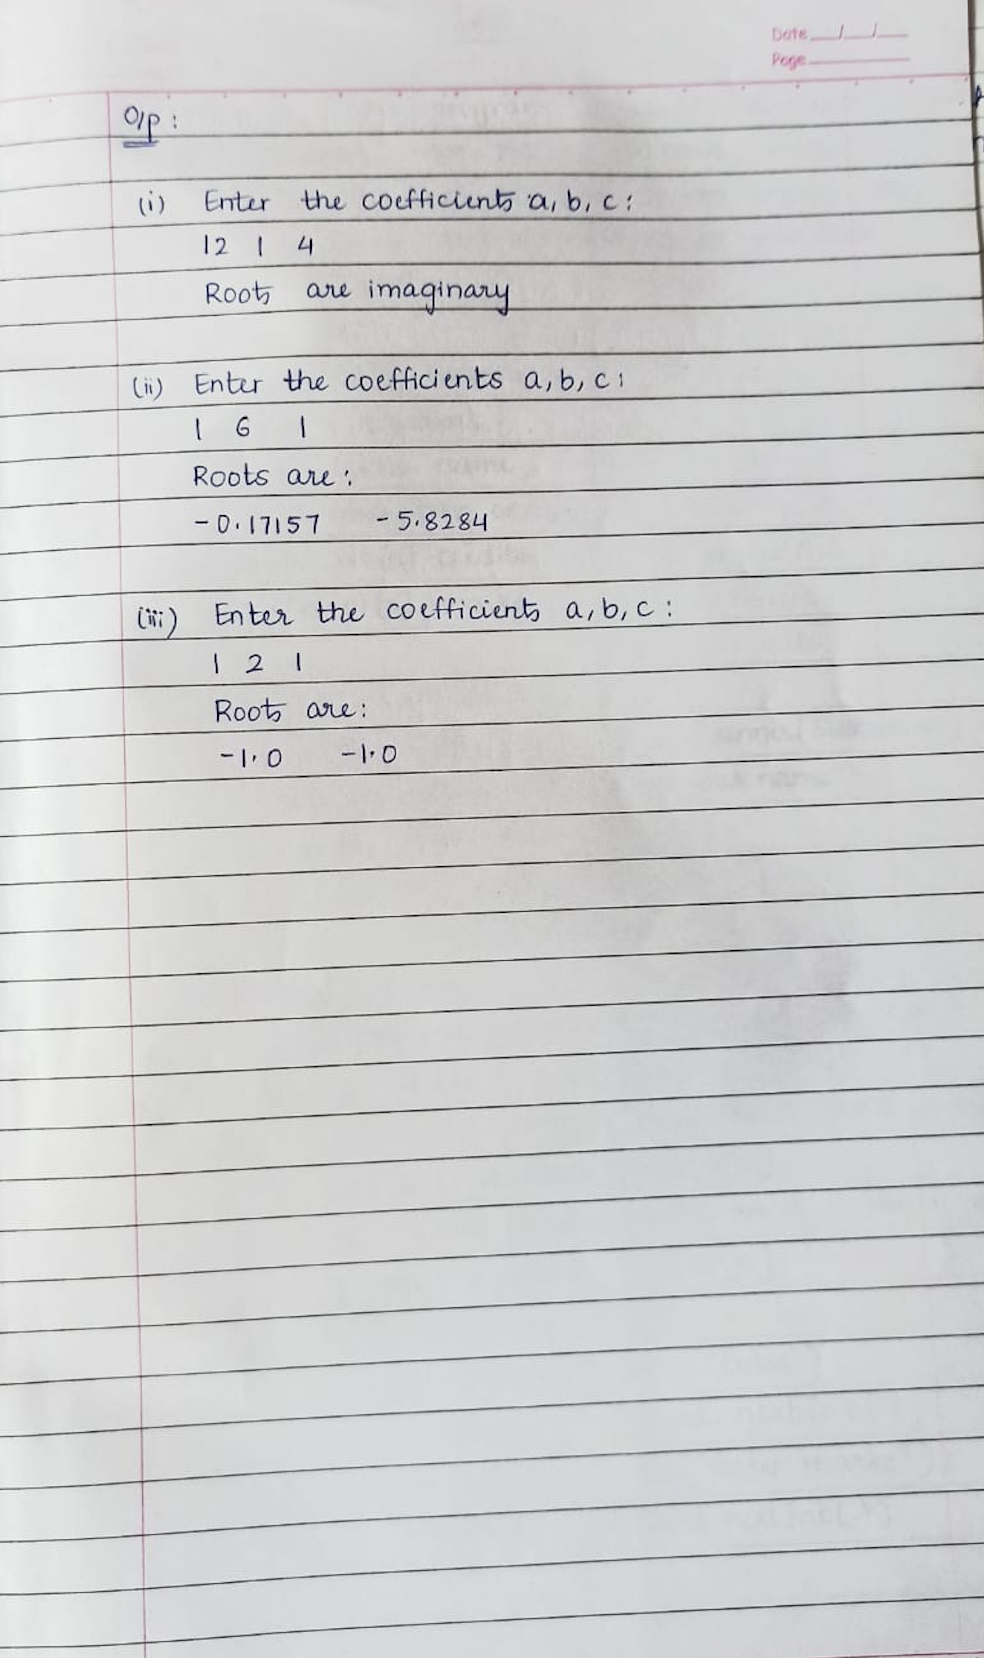 Date __/__/__
Page
O/P :
(i) Enter the coefficients a, b, c :
12 1 4
Roots are imaginary
(ii) Enter the coefficients a, b, c :
1 6 1
Roots are :
-0.17157 -5.8284
(iii) Enter the coefficients a, b, c :
1 2 1
Roots are :
-1.0 -1.0